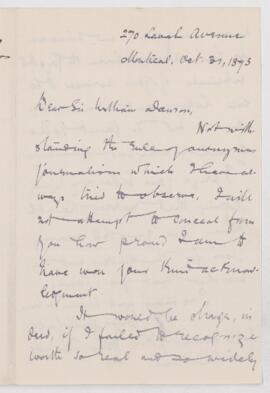 270 Laval Avenue
Montreal, Oct. 31, 1893
Dear Sir William Dawson,
Notwith
standing the rule of anonymous
journalism which I have al-
ways tried to observe, I will
not attempt to conceal from
you how proud I am to
have won your kind acknow-
ledgment
It would be strange, in
deed, if I failed to recognize
worth so real and so widely